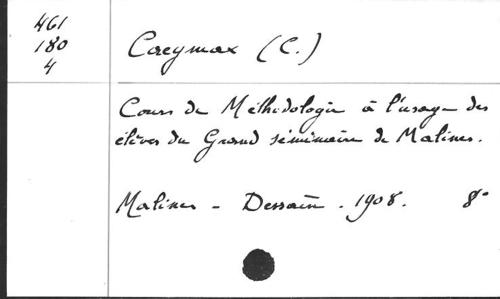 461
180
4
Caeymax (C.)
Cours de Méthodologie à l'usage des
élèves du Grand séminaire de Malines.
Malines - Dessain. 1908. 8°